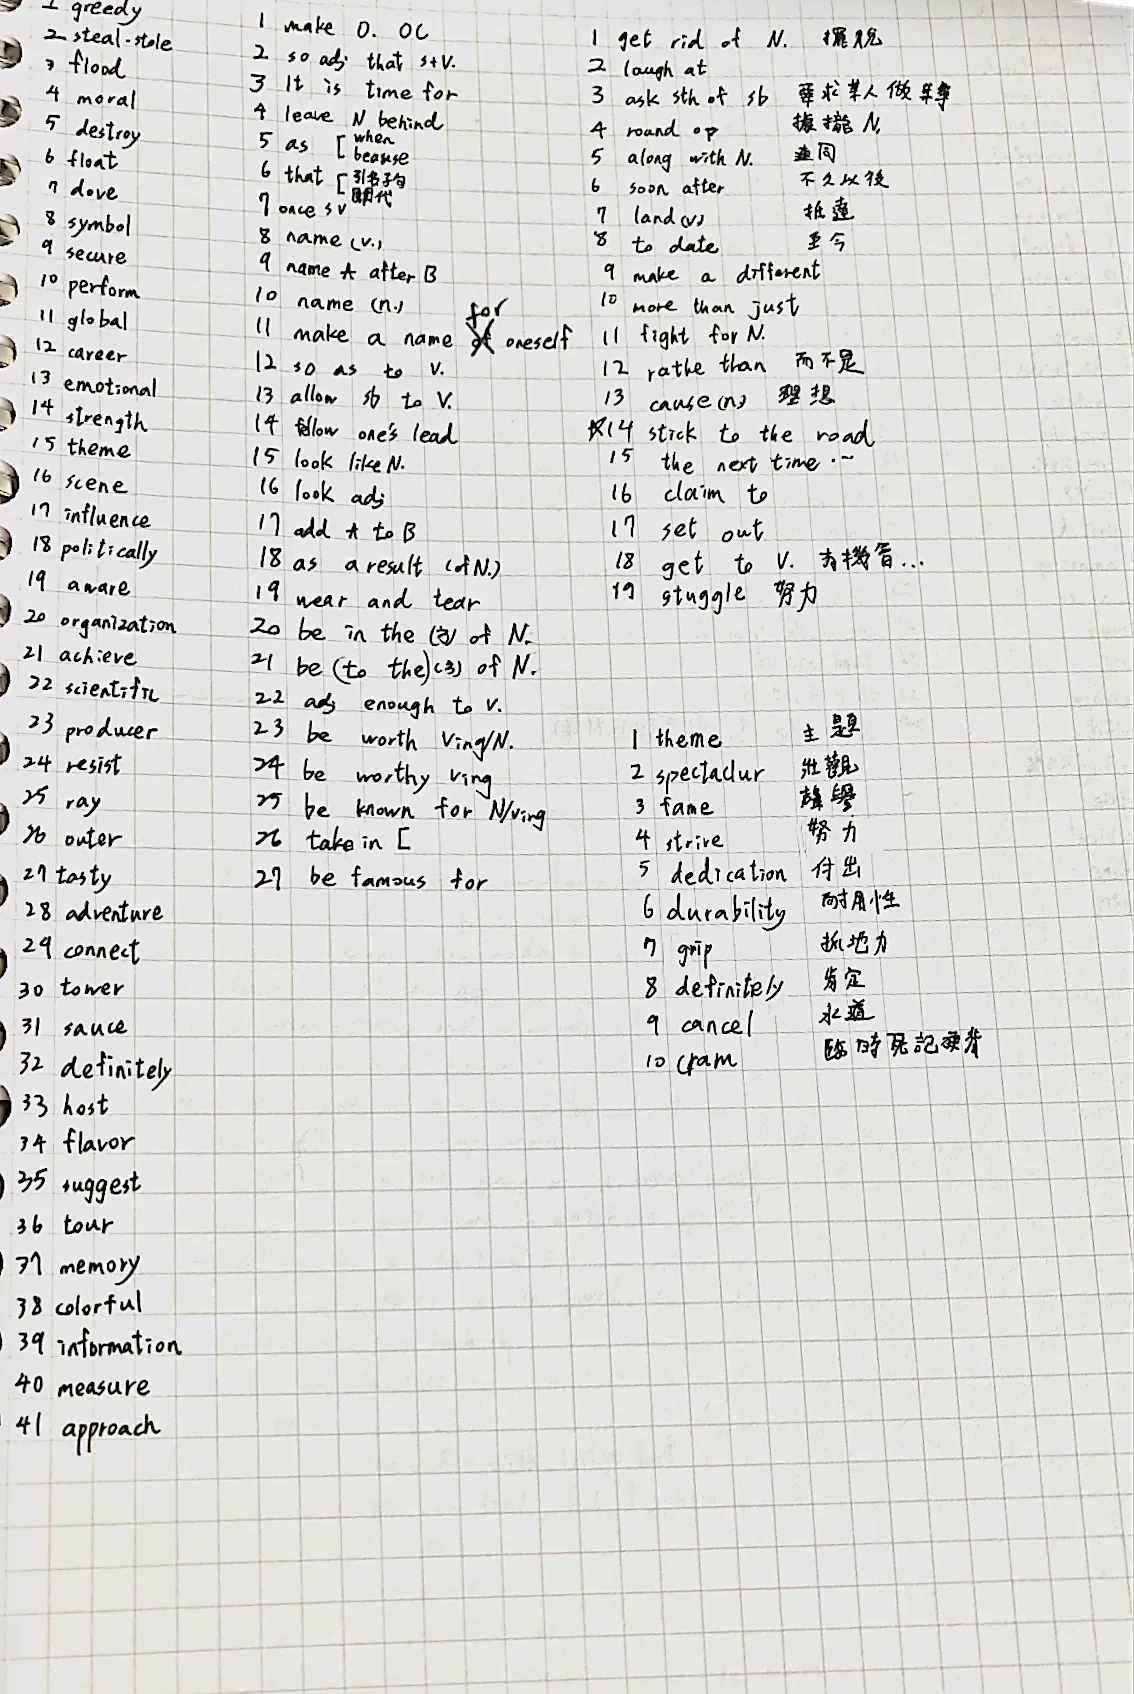 1 greedy
2 steal-stole
3 flood
4 moral
5 destroy
6 float
7 dove
8 symbol
9 secure
10 perform
11 global
12 career
13 emotional
14 strength
15 theme
16 scene
17 influence
18 politically
19 aware
20 organization
21 achieve
22 scientific
23 producer
24 resist
25 ray
26 outer
27 tasty
28 adventure
29 connect
30 tower
31 sauce
32 definitely
33 host
34 flavor
35 suggest
36 tour
37 memory
38 colorful
39 information
40 measure
41 approach
1 make O. OC
2 so adj that s+v.
3 It is time for
4 leave N behind
5 as [ when
beacuse
6 that [ 引名子句
關代
7 once sv
8 name (v.)
9 name A after B
10 name (n.)
for
11 make a name of oneself
12 so as to V.
13 allow sb to V.
14 follow one's lead
15 look like N.
16 look adj
17 add A to B
18 as a result (of N.)
19 wear and tear
20 be in the (名) of N.
21 be (to the) (名) of N.
22 adj enough to v.
23 be worth Ving/N.
24 be worthy ving
25 be known for N/ving
26 take in [
27 be famous for
1 get rid of N. 擺脫
2 laugh at
3 ask sth of sb 要求某人做某事
4 round op 據攏 N.
5 along with N. 連同
6 soon after 不久以後
7 land (v) 抵達
8 to date 至今
9 make a different
10 more than just
11 fight for N.
12 rathe than 而不是
13 cause (n) 理想
☆14 stick to the road
15 the next time ...
16 claim to
17 set out
18 get to V. 有機會...
19 stuggle 努力
1 theme 主題
2 spectaclur 壯觀
3 fame 聲譽
4 strive 努力
5 dedication 付出
6 durability 耐用性
7 grip 抓地力
8 definitely 肯定
9 cancel 水道
10 cram 臨時死記硬背